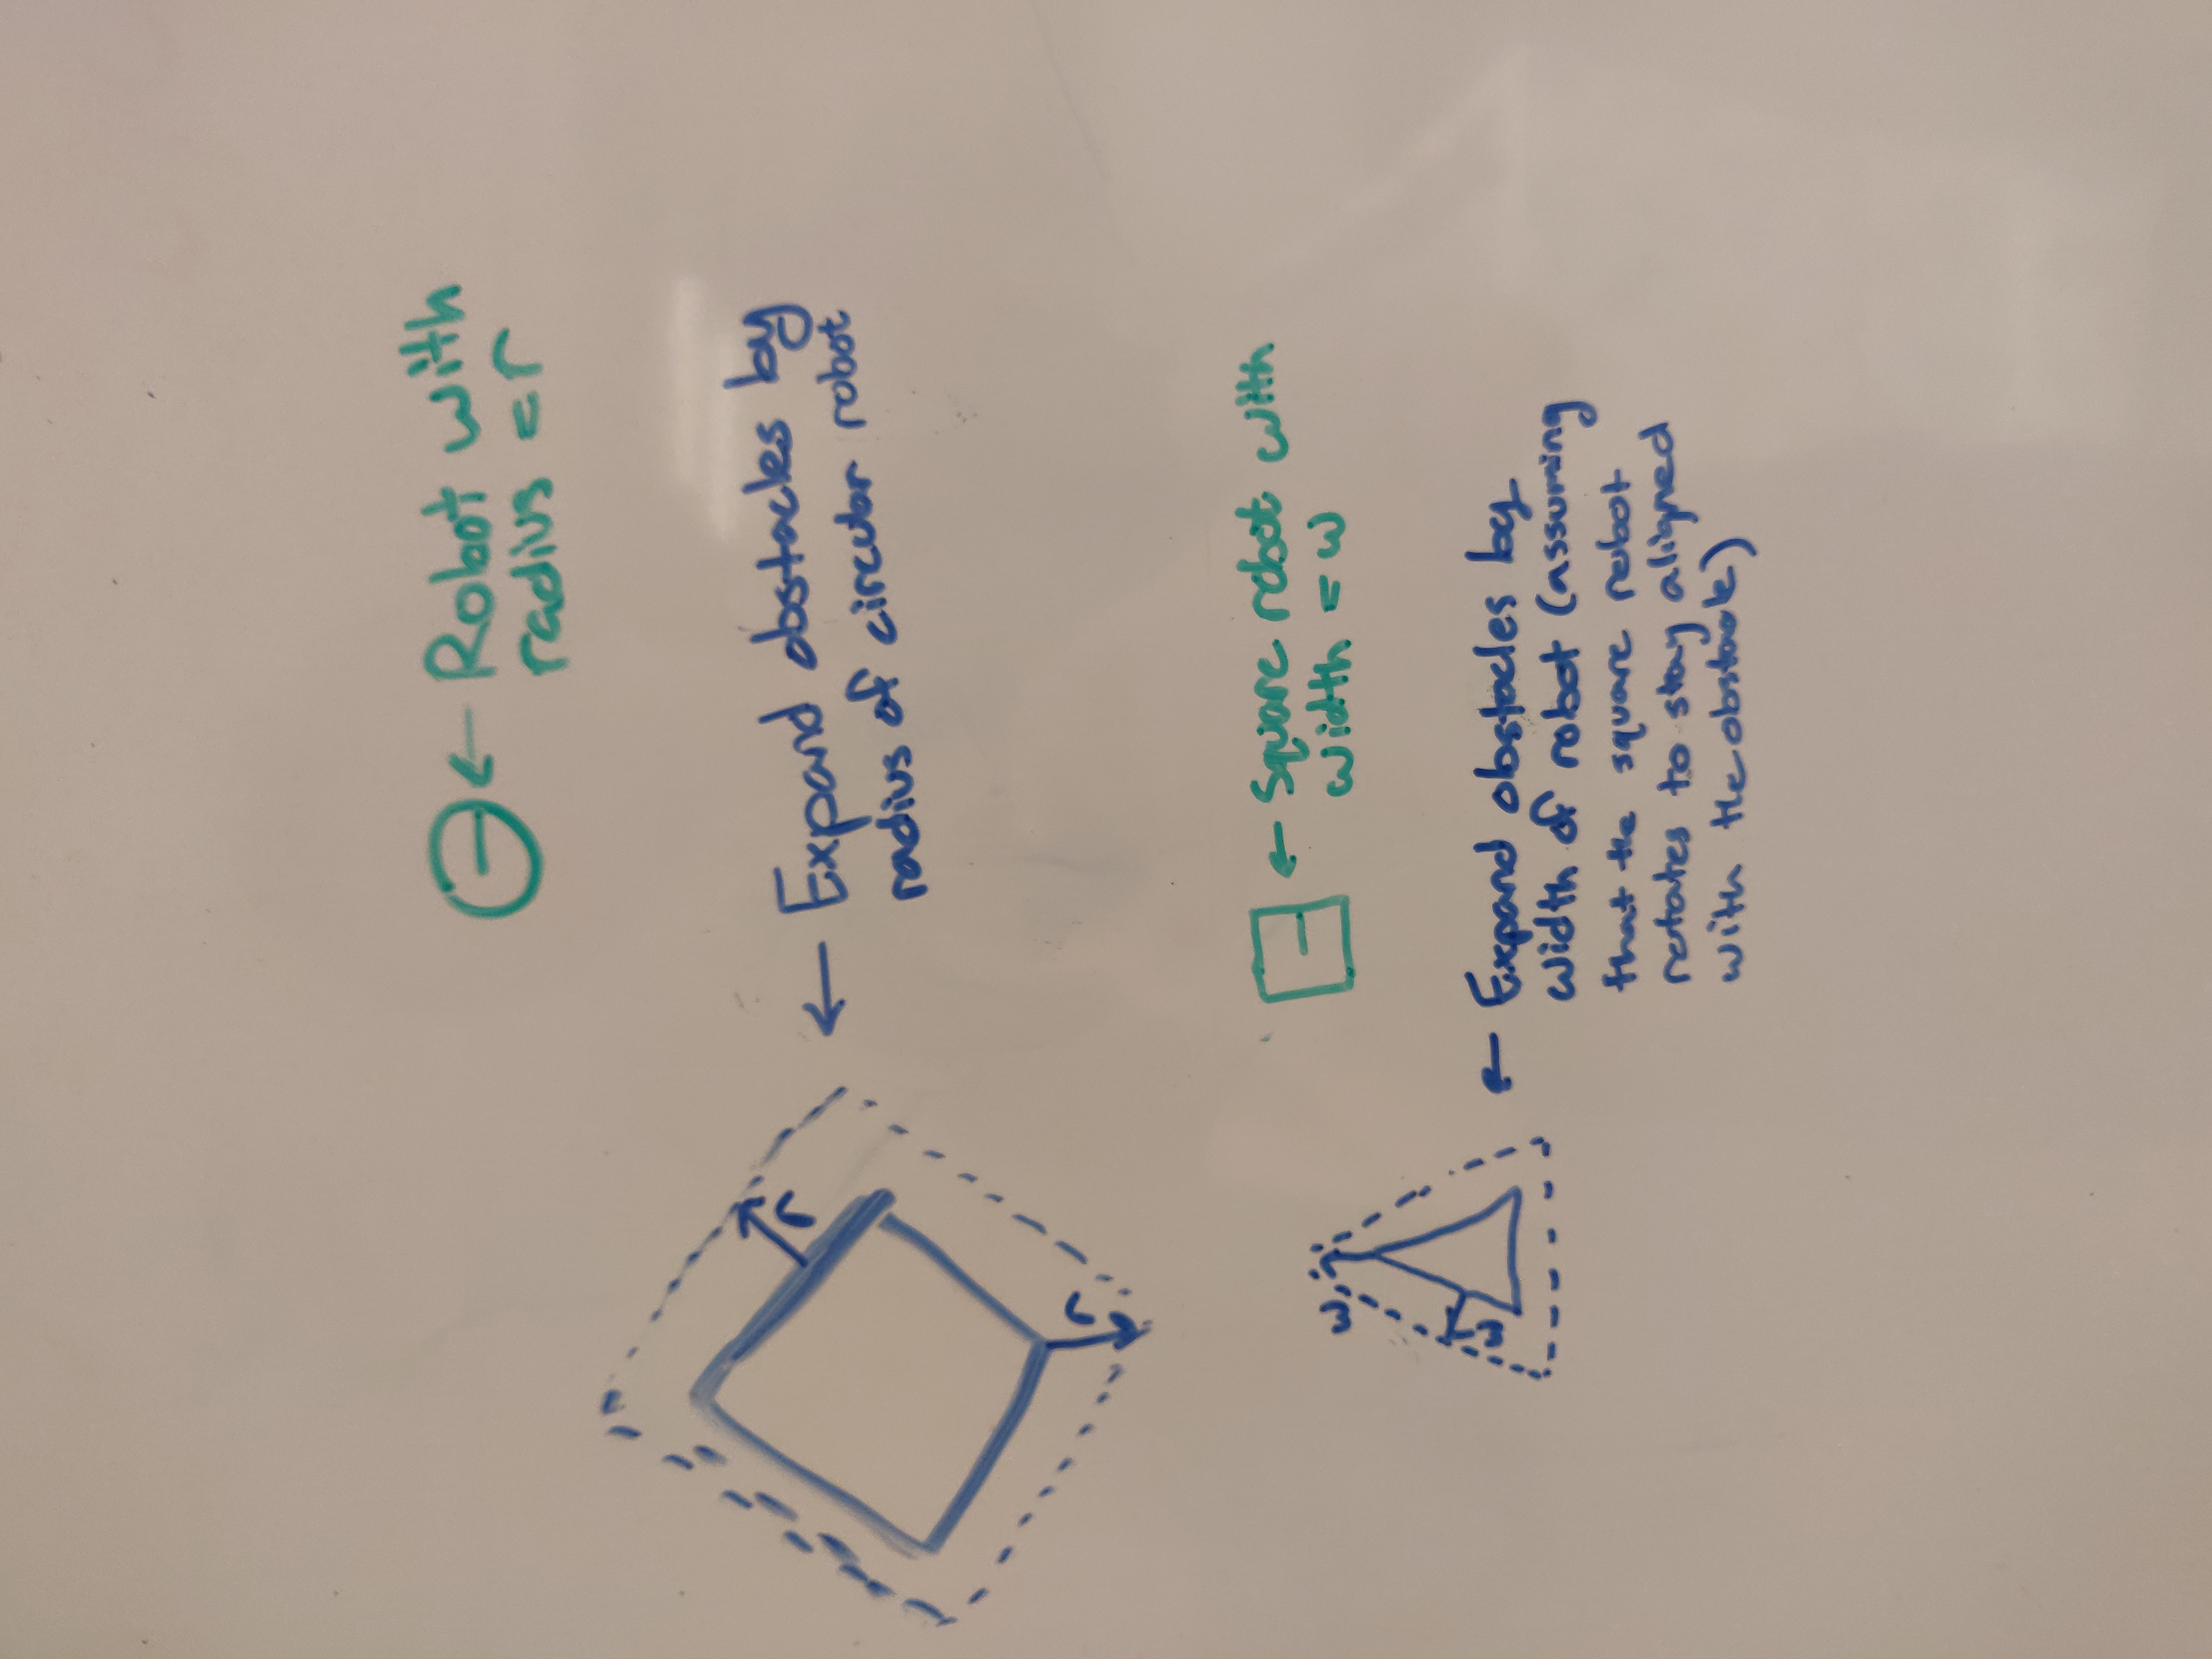 Robot with
radius = r
r
Expand obstacles by
radius of circular robot
r
Square robot with
width = w
w
w
Expand obstacles by
width of robot (assuming
that the square robot
rotates to stay aligned
with the obstacle)